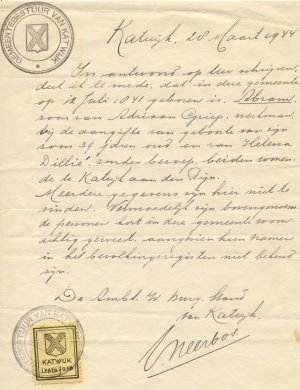 GEMEENTEBESTUUR VAN KATWIJK
Katwijk, 28 Maart 1944
In antwoord op Uw schrijven,
deel ik U mede, dat in deze gemeente
op 12 Juli 1841 geboren is, Abram,
zoon van Adriaan Griep, werkman,
bij de aangifte van geboorte van zijn
zoon 39 jaren oud en van Helena
Dillié, zonder beroep, beiden wonen-
de te Katwijk aan den Rijn.
Meerdere gegevens zijn hier niet te
vinden. Vermoedelijk zijn bovengenoem-
de personen kort in deze gemeente woon-
achtig geweest, aangezien hun namen
in het bevolkingsregister niet bekend
zijn.
De Ambt. v/d Burg. Stand
van Katwijk,
GEMEENTEBESTUUR VAN KATWIJK
KATWIJK
LEGES